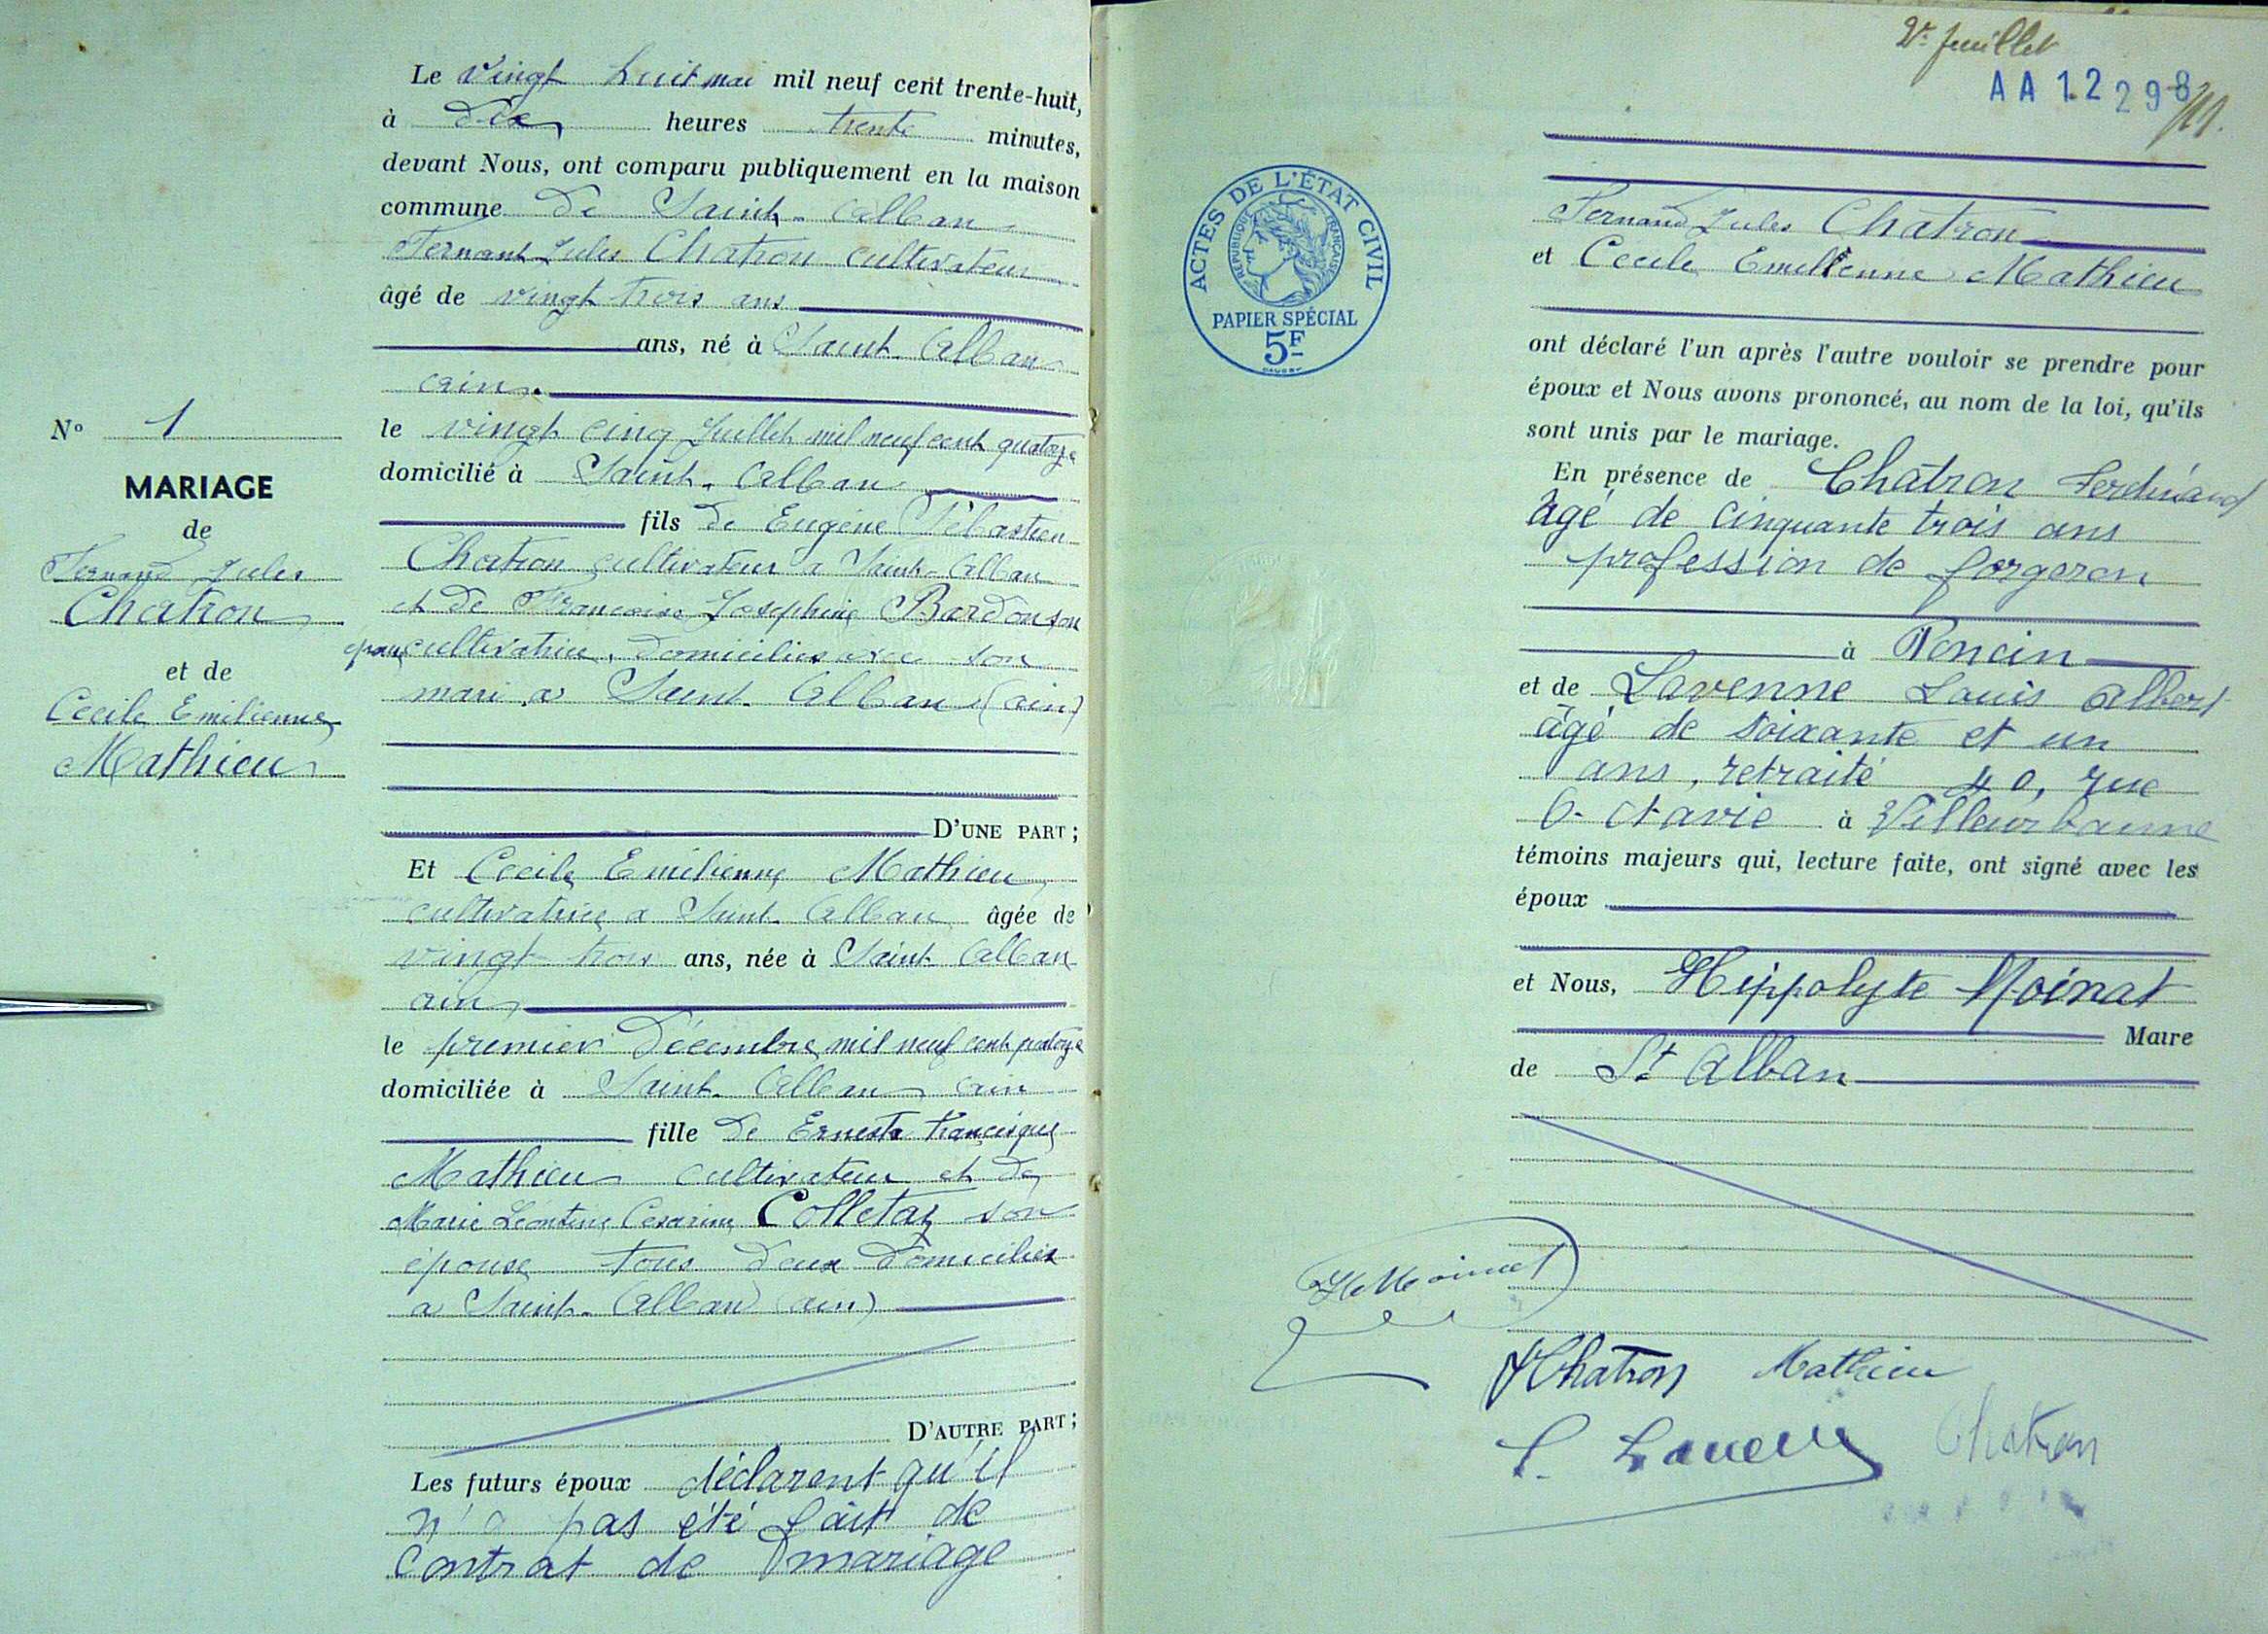 Le Vingt huit mai mil neuf cent trente-huit,
à Dix heures trente minutes,
devant Nous, ont comparu publiquement en la maison
commune de Saint-Alban
Fernand Jules Chatron cultivateur
âgé de vingt trois ans
ans, né à Saint-Alban
ain.
le vingt cinq Juillet mil neuf cent quatorze
domicilié à Saint-Alban
fils de Eugène Sébastien
Chatron cultivateur à Saint-Alban
et de Françoise Josephine Bardon son
épouse cultivatrice, domiciliés avec son
mari a Saint-Alban (ain)
D'UNE PART ;
Et Cécile Emilienne Mathieu
cultivatrice a Saint-Alban âgée de
vingt trois ans, née à Saint-Alban
ain
le premier Décembre mil neuf cent quatorze
domiciliée à Saint-Alban ain
fille de Ernest Françisque
Mathieu cultivateur et de
Marie Léontine Cesarine Colletaz son
épouse tous deux domiciliés
a Saint-Alban (ain)
D'AUTRE PART ;
Les futurs époux déclarent qu'il
n'a pas été fait de
contrat de mariage
N° 1
MARIAGE
de
Fernand Jules
Chatron
et de
Cécile Emilienne
Mathieu
2e feuillet
AA 12 298
ACTES DE L'ÉTAT CIVIL
RÉPUBLIQUE FRANÇAISE
PAPIER SPÉCIAL
5F
Fernand Jules Chatron
et Cécile Emilienne Mathieu
ont déclaré l'un après l'autre vouloir se prendre pour
époux et Nous avons prononcé, au nom de la loi, qu'ils
sont unis par le mariage.
En présence de Chatron Ferdinand
âgé de cinquante trois ans
profession de forgeron
à Poncin
et de Lavenne Louis Albert
âgé de soixante et un
ans, retraité 40, rue
Octavie à Villeurbanne
témoins majeurs qui, lecture faite, ont signé avec les
époux
et Nous, Hippolyte Moinat
Maire
de St Alban
H Moinat
F Chatron Mathieu
Chatron